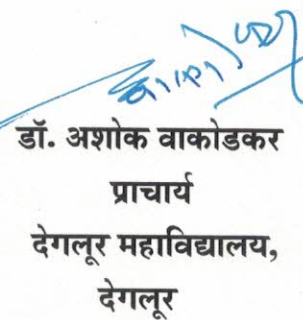 डॉ. अशोक वाकोडकर
प्राचार्य
देगलूर महाविद्यालय,
देगलूर